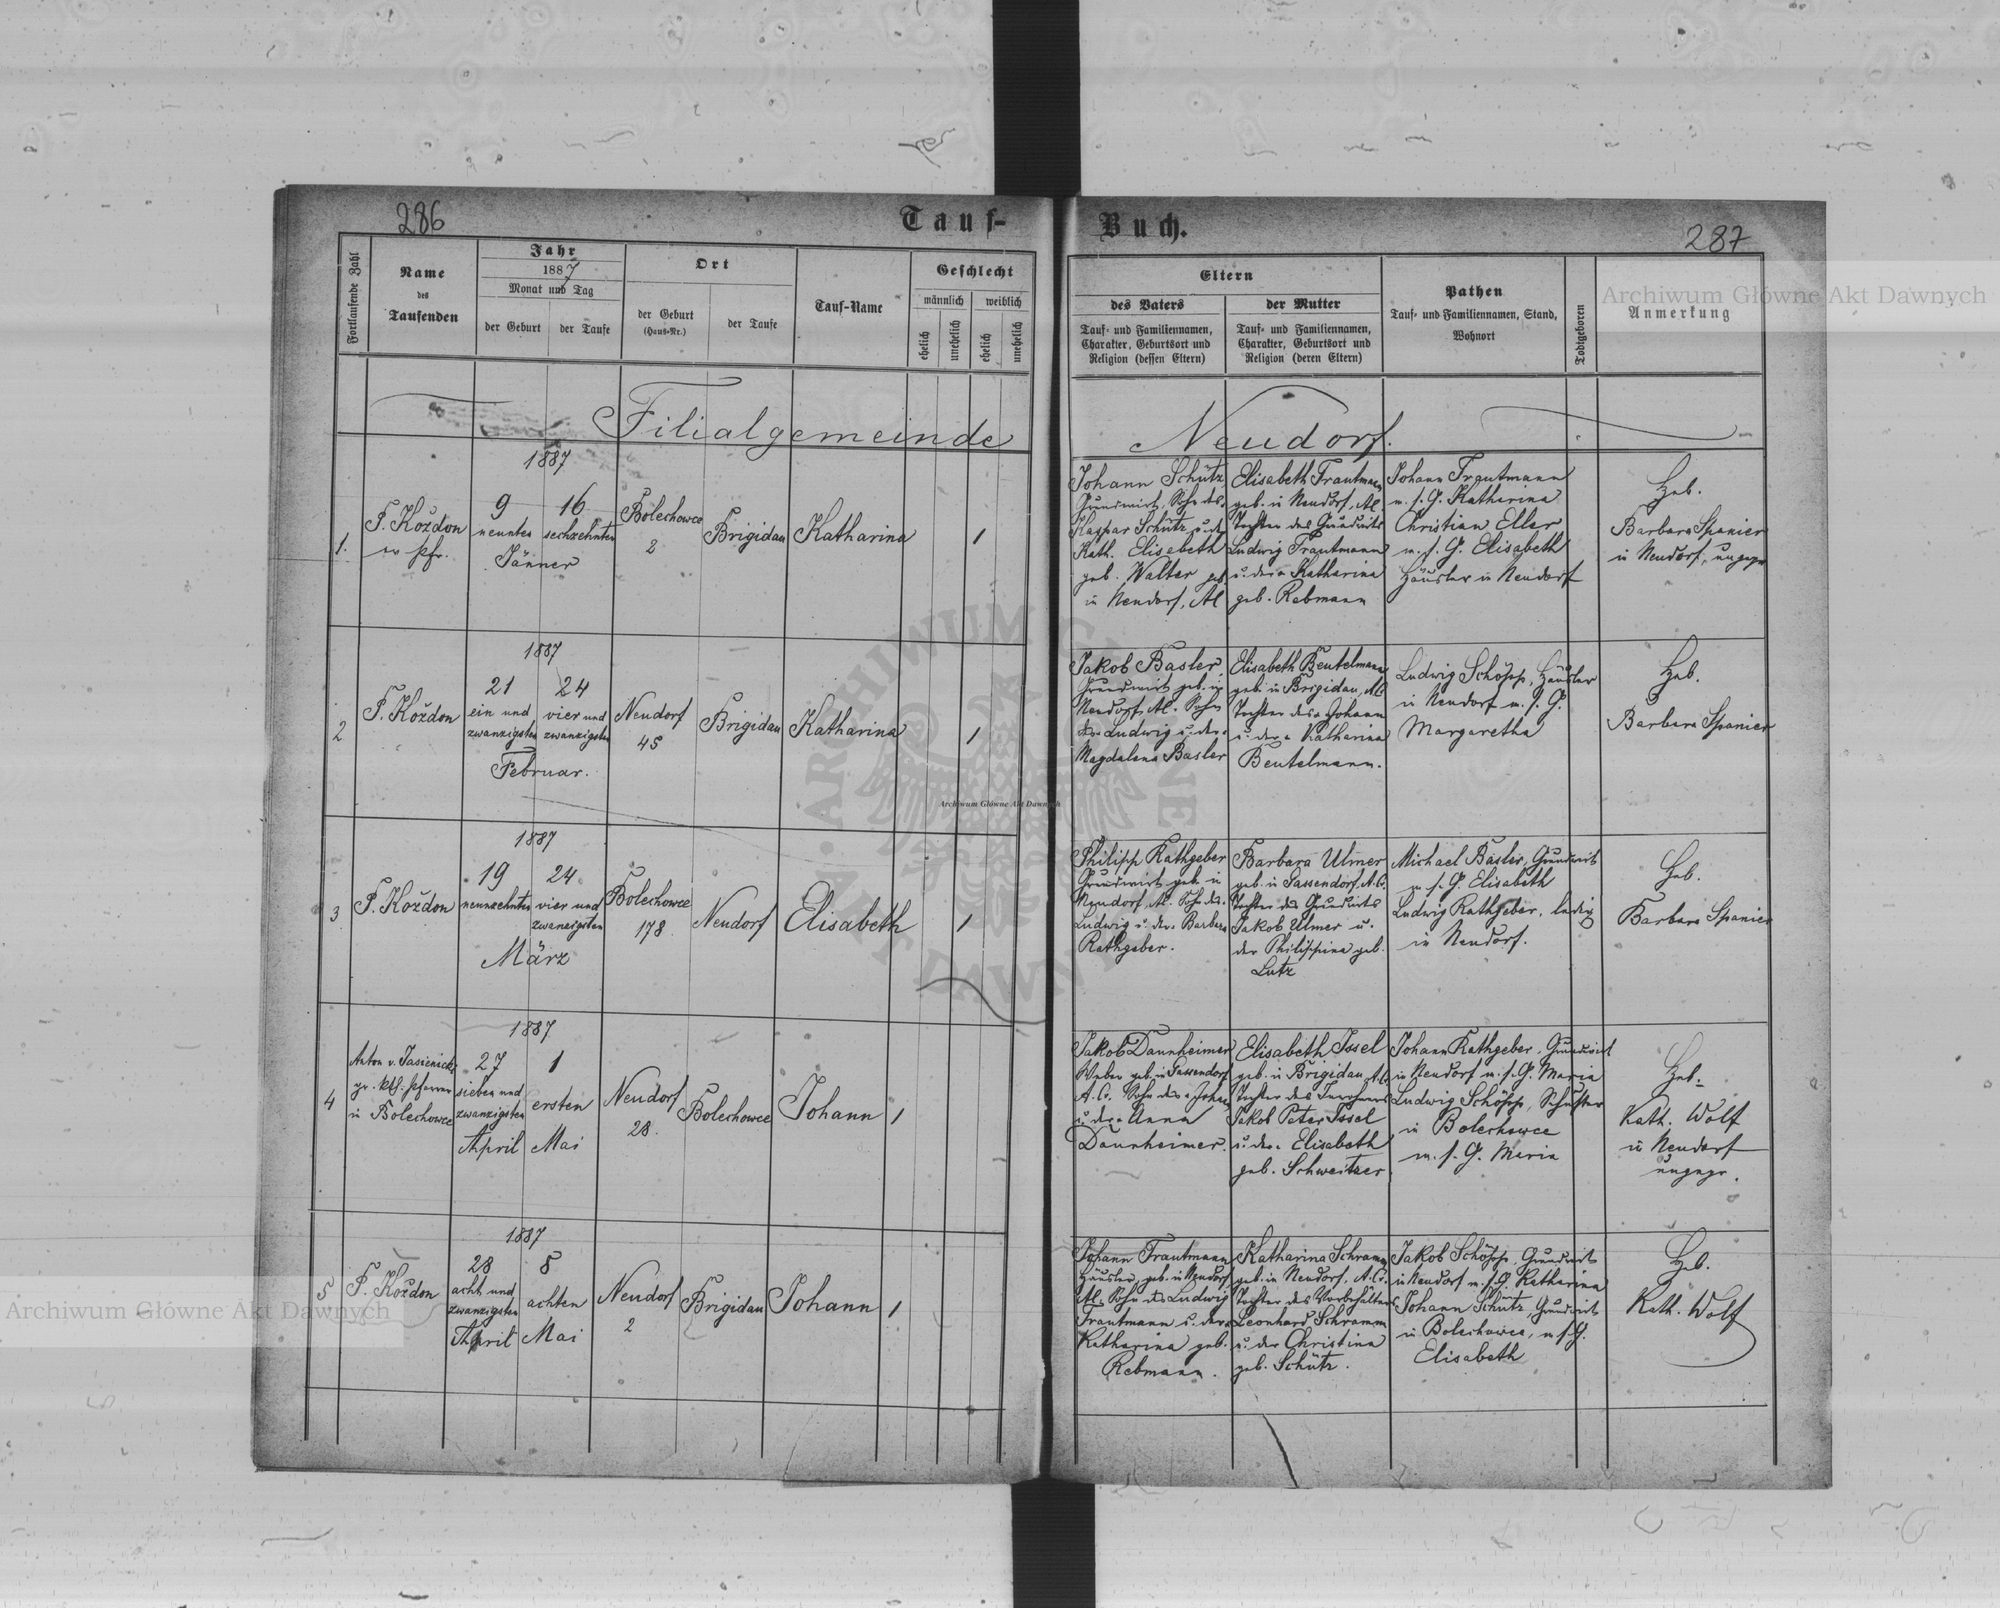 286
Tauf-
Fortlaufende Zahl
Name
des
Taufenden
Jahr
1887
Monat und Tag
der Geburt
der Taufe
Ort
der Geburt
(Haus-Nr.)
der Taufe
Tauf-Name
Geschlecht
männlich
weiblich
ehelich
unehelich
ehelich
unehelich
Filialgemeinde
1.
F. Koždon
Pfr.
1887
9 16
neunten sechzehnten
Jänner
Bolechowce
2
Brigidau
Katharina
1
2
F. Koždon
1887
21 24
ein und vier und
zwanzigsten zwanzigsten
Februar.
Neudorf
45
Brigidau
Katharina
1
3
F. Koždon
1887
19 24
neunzehnten vier und
zwanzigsten
März
Bolechowce
178
Neudorf
Elisabeth
1
4
Anton v. Jasienicki
gr. ktl. Pfarrer
in Bolechowce
1887
27 1
sieben und
zwanzigsten ersten
April Mai
Neudorf
28.
Bolechowce
Johann
1
5
F. Koždon
1887
28 8
acht und
zwanzigsten achten
April Mai
Neudorf
2
Brigidau
Johann
1
Buch.
287
Eltern
des Vaters
Tauf- und Familiennamen,
Charakter, Geburtsort und
Religion (dessen Eltern)
der Mutter
Tauf- und Familiennamen,
Charakter, Geburtsort und
Religion (deren Eltern)
Pathen
Tauf- und Familiennamen, Stand,
Wohnort
Todtgeboren
Anmerkung
Neudorf.
Johann Schütz
Grundwirt, Sohn des
Kaspar Schütz u. der
Kath. Elisabeth
geb. Walter geb.
in Neudorf, AC
Elisabeth Trautmann
geb. in Neudorf, AC
Tochter des Grundwirts
Ludwig Trautmann
u. der Katharina
geb. Rebmann
Johann Trautmann
m. s. G. Katharina
Christian Eller
m. s. G. Elisabeth
Häusler in Neudorf
Heb.
Barbara Spanier
in Neudorf, ungepr
Jakob Basler,
Grundwirt geb. in
Neudorf, AC. Sohn
des Ludwig u. der
Magdalena Basler
Elisabeth Beutelmann
geb. in Brigidau, AC
Tochter des Johann
u. der Katharina
Beutelmann.
Ludwig Schöpp, Häusler
in Neudorf m. s. G.
Margaretha
Heb.
Barbara Spanier
Philipp Rathgeber
Grundwirt geb. in
Neudorf, AC. Sohn des
Ludwig u. der Barbara
Rathgeber.
Barbara Ulmer
geb. in Gassendorf, A.C.
Tochter des Grundwirts
Jakob Ulmer u.
der Philippina geb.
Lutz
Michael Basler, Grundwirt
m. s. G. Elisabeth
Ludwig Rathgeber, ledig
in Neudorf.
Heb.
Barbara Spanier
Jakob Dannheimer
Weber geb. in Gassendorf
A.C. Sohn des Johann
u. der Anna
Dannheimer.
Elisabeth Issel
geb. in Brigidau, AC
Tochter des
Jakob Peter Issel
u. der Elisabeth
geb. Schweitzer
Johann Rathgeber, Grundwirt
in Neudorf m. s. G. Maria
Ludwig Schöpp, Schuster
in Bolechowce
m. s. G. Maria
Heb.
Kath. Wolf
in Neudorf
ungepr.
Johann Trautmann
Häusler geb. in Neudorf
AC. Sohn des Ludwig
Trautmann u. der
Katharina geb.
Rebmann.
Katharina Schramm
geb. in Neudorf, A.C.
Tochter des Vorbehälters
Leonhard Schramm
u. der Christina
geb. Schütz.
Jakob Schöpp, Grundwirt
in Neudorf m. s. G. Katharina
Johann Schütz, Grundwirt
in Bolechowce, m. s. G.
Elisabeth
Heb.
Kath. Wolf
Archiwum Główne Akt Dawnych
Archiwum Główne Akt Dawnych
Archiwum Główne Akt Dawnych